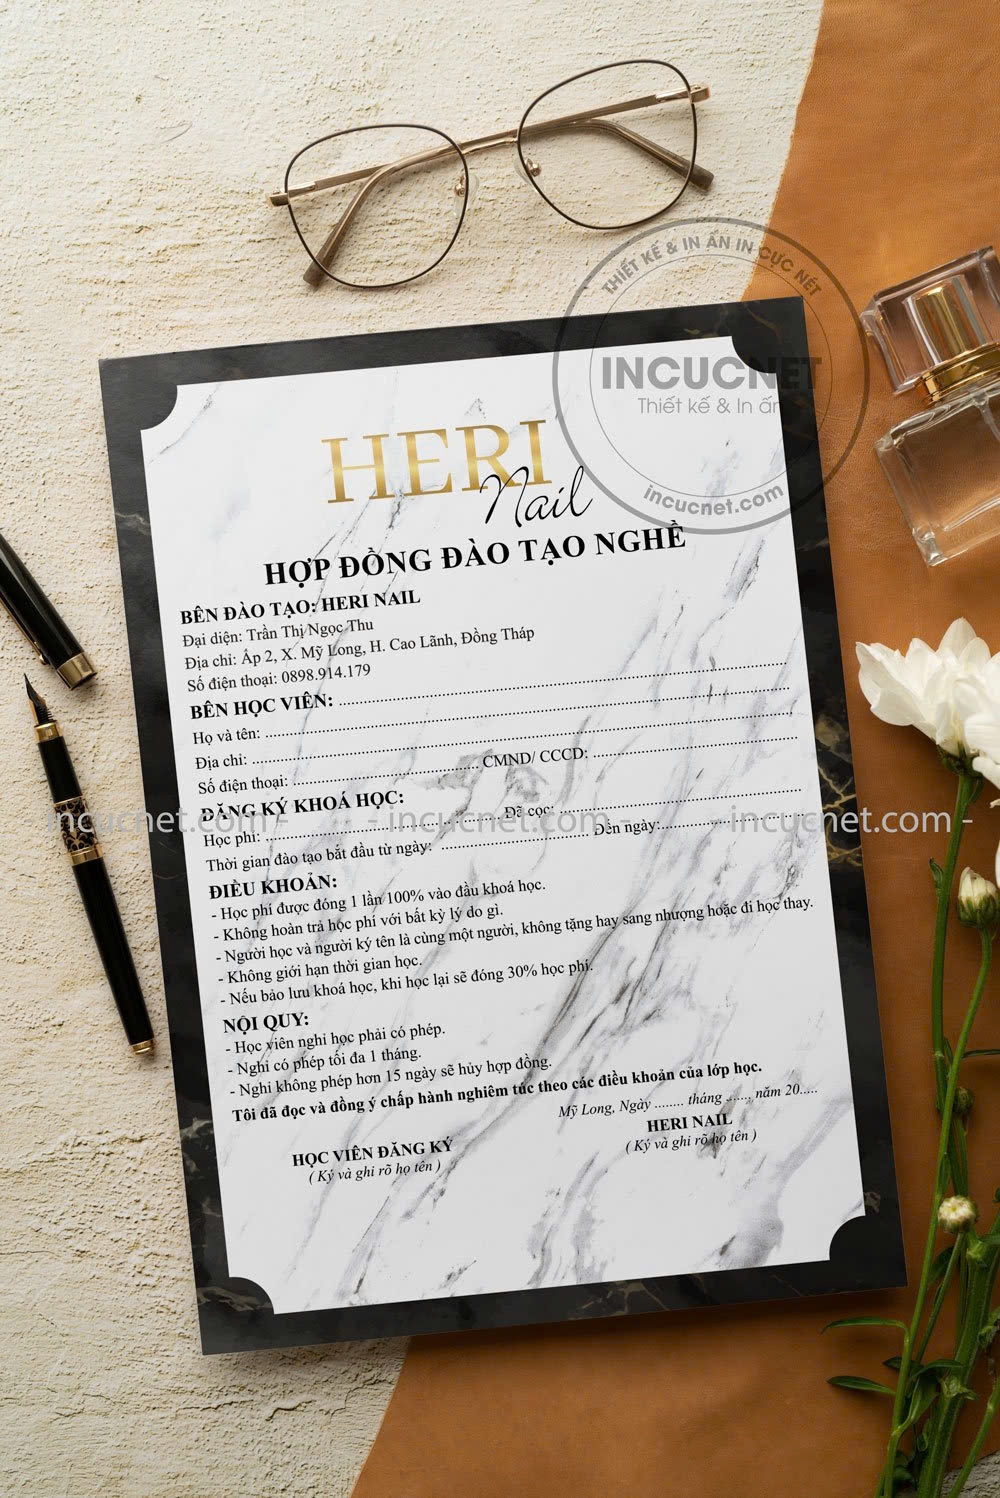 THIẾT KẾ & IN ẤN IN CỰC NÉT
INCUCNET
Thiết kế & In ấn
incucnet.com
HERI
Nail
HỢP ĐỒNG ĐÀO TẠO NGHỀ
BÊN ĐÀO TẠO: HERI NAIL
Đại diện: Trần Thị Ngọc Thu
Địa chỉ: Ấp 2, X. Mỹ Long, H. Cao Lãnh, Đồng Tháp
Số điện thoại: 0898.914.179
BÊN HỌC VIÊN: ....................
Họ và tên: ....................
Địa chỉ: ....................
Số điện thoại: .................... CMND/ CCCD: ....................
ĐĂNG KÝ KHOÁ HỌC:
Học phí: .................... Đã cọc: ....................
incucnet.com - - incucnet.com - - incucnet.com -
Thời gian đào tạo bắt đầu từ ngày: .................... Đến ngày:....................
ĐIỀU KHOẢN:
- Học phí được đóng 1 lần 100% vào đầu khoá học.
- Không hoàn trả học phí với bất kỳ lý do gì.
- Người học và người ký tên là cùng một người, không tặng hay sang nhượng hoặc đi học thay.
- Không giới hạn thời gian học.
- Nếu bảo lưu khoá học, khi học lại sẽ đóng 30% học phí.
NỘI QUY:
- Học viên nghỉ học phải có phép.
- Nghỉ có phép tối đa 1 tháng.
- Nghỉ không phép hơn 15 ngày sẽ hủy hợp đồng.
Tôi đã đọc và đồng ý chấp hành nghiêm túc theo các điều khoản của lớp học.
Mỹ Long, Ngày ........ tháng ......., năm 20.....
HỌC VIÊN ĐĂNG KÝ
( Ký và ghi rõ họ tên )
HERI NAIL
( Ký và ghi rõ họ tên )